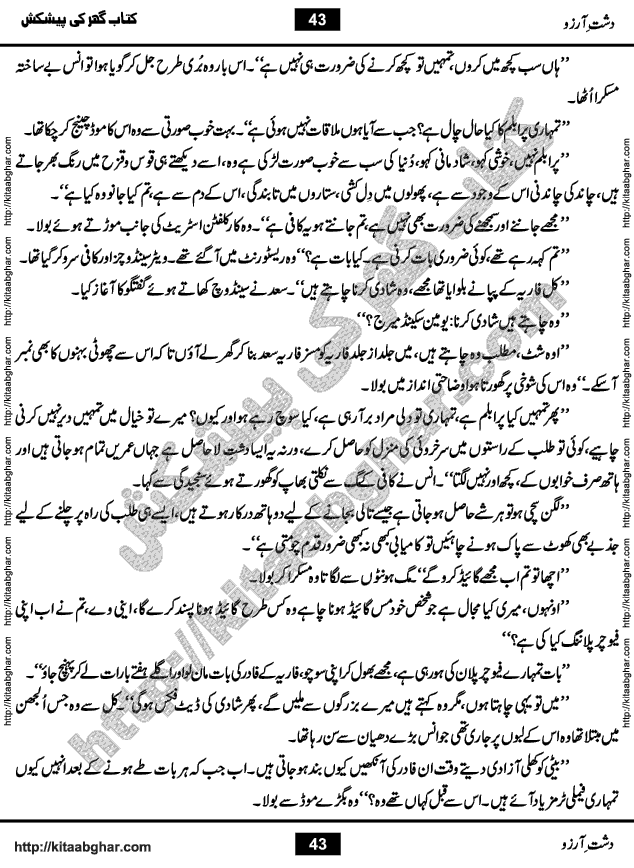 کتاب گھر کی پیشکش 43 دشتِ آرزو
’’ہاں سب کچھ میں کروں، تمہیں تو کچھ کرنے کی ضرورت ہی نہیں ہے‘‘۔ اس بار وہ بُری طرح جل کر گویا ہوا تو انس بے ساختہ
مسکرا اُٹھا۔
’’تمہاری پرابلم کا کیا حال چال ہے؟ جب سے آیا ہوں ملاقات نہیں ہوئی ہے‘‘۔ بہت خوب صورتی سے وہ اس کا موڈ چینج کر چکا تھا۔
’’پرابلم نہیں، خوشی کہو، شادمانی کہو، دُنیا کی سب سے خوب صورت لڑکی ہے وہ، اسے دیکھتے ہی قوس و قزح میں رنگ بھر جاتے
ہیں، چاند کی چاندنی اس کے وجود سے ہے، پھولوں میں دِل کشی، ستاروں میں تابندگی، اس کے دم سے ہے، تم کیا جانو وہ کیا ہے‘‘۔
’’مجھے جاننے اور سمجھنے کی ضرورت بھی نہیں ہے، تم جانتے ہو یہ کافی ہے‘‘۔ وہ کار کلفٹن اسٹریٹ کی جانب موڑتے ہوئے بولا۔
’’تم کہہ رہے تھے، کوئی ضروری بات کرنی ہے۔ کیا بات ہے؟‘‘ وہ ریسٹورنٹ میں آ گئے تھے۔ ویٹر سینڈوچز اور کافی سرو کر گیا تھا۔
’’کل فاریہ کے پپا نے بلوایا تھا مجھے، وہ شادی کرنا چاہتے ہیں‘‘۔ سعد نے سینڈوچ کھاتے ہوئے گفتگو کا آغاز کیا۔
’’وہ چاہتے ہیں شادی کرنا: یو مین سیکنڈ میرج؟‘‘
’’اوہ شٹ، مطلب وہ چاہتے ہیں، میں جلد از جلد فاریہ کو مسز فاریہ سعد بنا کر گھر لے آؤں تا کہ اس سے چھوٹی بہنوں کا بھی نمبر
آ سکے۔‘‘ وہ اس کی شوخی پر گھورتا ہوا وضاحتی انداز میں بولا۔
’’پھر تمہیں کیا پرابلم ہے، تمہاری تو دلی مراد بر آ رہی ہے، کیا سوچ رہے ہو اور کیوں؟ میرے تو خیال میں تمہیں دیر نہیں کرنی
چاہیے، کوئی تو طلب کے راستوں میں سرخروئی کی منزل کو حاصل کرے، ورنہ یہ ایسا دشتِ لا حاصل ہے جہاں عمریں تمام ہو جاتی ہیں اور
ہاتھ صرف خوابوں کے، کچھ اور نہیں لگتا‘‘۔ انس نے کافی کے مگ سے نکلتی بھاپ کو گھورتے ہوئے سنجیدگی سے کہا۔
’’لگن سچی ہو تو ہر شے حاصل ہو جاتی ہے جیسے تالی بجانے کے لیے دو ہاتھ درکار ہوتے ہیں، ایسے ہی طلب کی راہ پر چلنے کے لیے
جذبے بھی کھوٹ سے پاک ہونے چاہئیں تو کامیابی کبھی نہ کبھی ضرور قدم چومتی ہے‘‘۔
’’اچھا تو تم اب مجھے گائیڈ کرو گے‘‘ مگ ہونٹوں سے لگاتا وہ مسکرا کر بولا۔
’’اونہوں، میری کیا مجال ہے جو شخص خود مس گائیڈ ہونا چاہے وہ کس طرح گائیڈ ہونا پسند کرے گا، اینی وے، تم نے اب اپنی
فیوچر پلاننگ کیا کی ہے؟‘‘
’’بات تمہارے فیوچر پلان کی ہو رہی ہے، مجھے بھول کر اپنی سوچو، فاریہ کے فادر کی بات مان لو اور اگلے ہفتے بارات لے کر پہنچ جاؤ‘‘۔
’’میں تو یہی چاہتا ہوں، مگر وہ کہتے ہیں میرے بزرگوں سے ملیں گے، پھر شادی کی ڈیٹ فکس ہو گی‘‘۔ کل سے وہ جس اُلجھن
میں مبتلا تھا وہ اس کے لبوں پر جاری تھی جو انس بڑے دھیان سے سن رہا تھا۔
’’بیٹی کو کھلی آزادی دیتے وقت ان فادر کی آنکھیں کیوں بند ہو جاتی ہیں۔ اب جب کہ ہر بات طے ہونے کے بعد انہیں کیوں
تمہاری فیملی ٹرمز یاد آئے ہیں۔ اس سے قبل کہاں تھے وہ؟‘‘ وہ بگڑے موڈ سے بولا۔
http://kitaabghar.com 43 دشتِ آرزو
http://kitaabghar.com http://kitaabghar.com http://kitaabghar.com http://kitaabghar.com http://kitaabghar.com http://kitaabghar.com
http://kitaabghar.com http://kitaabghar.com http://kitaabghar.com http://kitaabghar.com http://kitaabghar.com http://kitaabghar.com
کتاب گھر کی پیشکش
http://kitaabghar.com